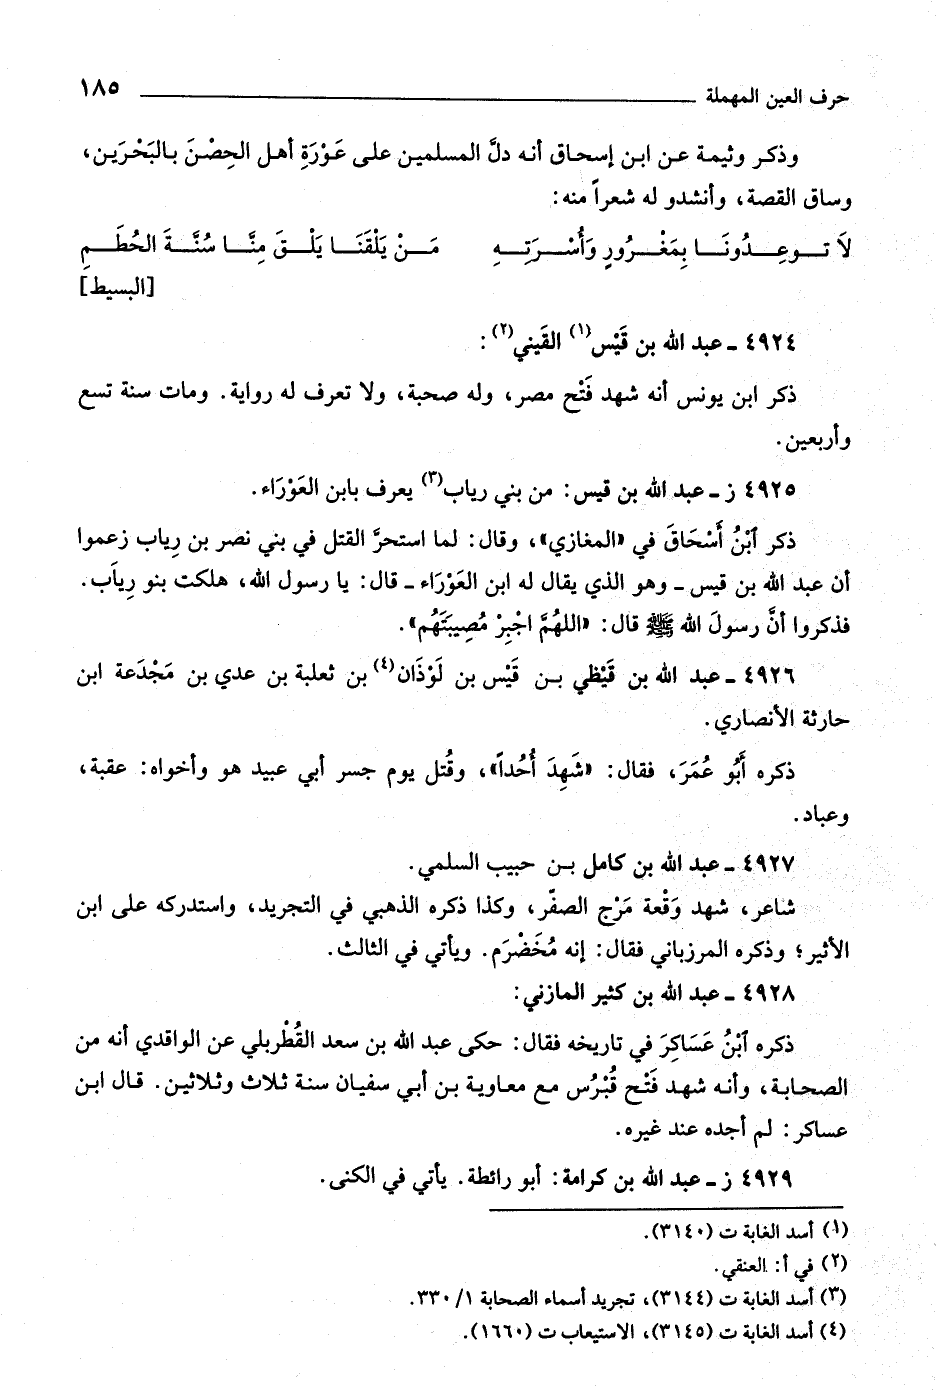 حرف العين المهملة ١٨٥
وذكر وثيمة عن ابن إسحاق أنه دلَّ المسلمين على عَوْرَةِ أهل الحِصْنَ بالبَحْرَين،
وساق القصة، وأنشدو له شعراً منه:
لاَ تـوعِـدُونَـا بِمَغْـرُورٍ وَأُسْـرَتِـهِ مَـنْ يَلْقَنَـا يَلْـقَ مِنَّـا سُنَّـةَ الحُطَـمِ
[البسيط]
٤٩٢٤ ـ عبد الله بن قَيْس(١) القَيني(٢):
ذكر ابن يونس أنه شهد فَتْح مصر، وله صحبة، ولا تعرف له رواية. ومات سنة تسع
وأربعين.
٤٩٢٥ ز ـ عبد الله بن قيس: من بني رياب(٣) يعرف بابن العَوْرَاء.
ذكر ٱبْنُ أَسْحَاقَ في «المغازي»، وقال: لما استحرَّ القتل في بني نصر بن رِياب زعموا
أن عبد الله بن قيس ـ وهو الذي يقال له ابن العَوْرَاء ـ قال: يا رسول الله، هلكت بنو رِياَب.
فذكروا أنَّ رسولَ الله ﷺ قال: «اللهُمَّ اجْبِرْ مُصِيبَتَهُم».
٤٩٢٦ ـ عبد الله بن قَيْظي بـن قَيْس بن لَوْذَان(٤) بن ثعلبة بن عدي بن مَجْدَعة ابن
حارثة الأنصاري.
ذكره أَبُو عُمَرَ، فقال: «شَهِدَ أُحُداً»، وقُتل يوم جسر أبي عبيد هو وأخواه: عقبة،
وعباد.
٤٩٢٧ ـ عبد الله بن كامل بـن حبيب السلمي.
شاعر، شهد وَقْعة مَرْج الصفّر، وكذا ذكره الذهبي في التجريد، واستدركه على ابن
الأثير؛ وذكره المرزباني فقال: إنه مُخَضْرَم. ويأتي في الثالث.
٤٩٢٨ ـ عبد الله بن كثير المازني:
ذكره ٱبْنُ عَسَاكِرَ في تاريخه فقال: حكى عبد الله بن سعد القُطْربلي عن الواقدي أنه من
الصحابة، وأنه شهد فَتْح قُبْرُس مع معاوية بن أبي سفيان سنة ثلاث وثلاثين. قال ابن
عساكر: لم أجده عند غيره.
٤٩٢٩ ز ـ عبد الله بن كرامة: أبو رائطة. يأتي في الكنى.
(١) أسد الغابة ت (٣١٤٠).
(٢) في أ: العنقي.
(٣) أسد الغابة ت (٣١٤٤)، تجريد أسماء الصحابة ١/ ٣٣٠.
(٤) أسد الغابة ت (٣١٤٥)، الاستيعاب ت (١٦٦٠).